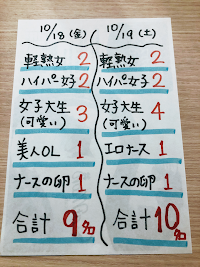 10/18(金)
軽熟女 2
ハイパ女子 2
女子大生 3
(可愛い)
美人OL 1
ナースの卵 1
合計 9名
10/19(土)
軽熟女 2
ハイパ女子 2
女子大生 4
(可愛い)
エロナース 1
ナースの卵 1
合計 10名